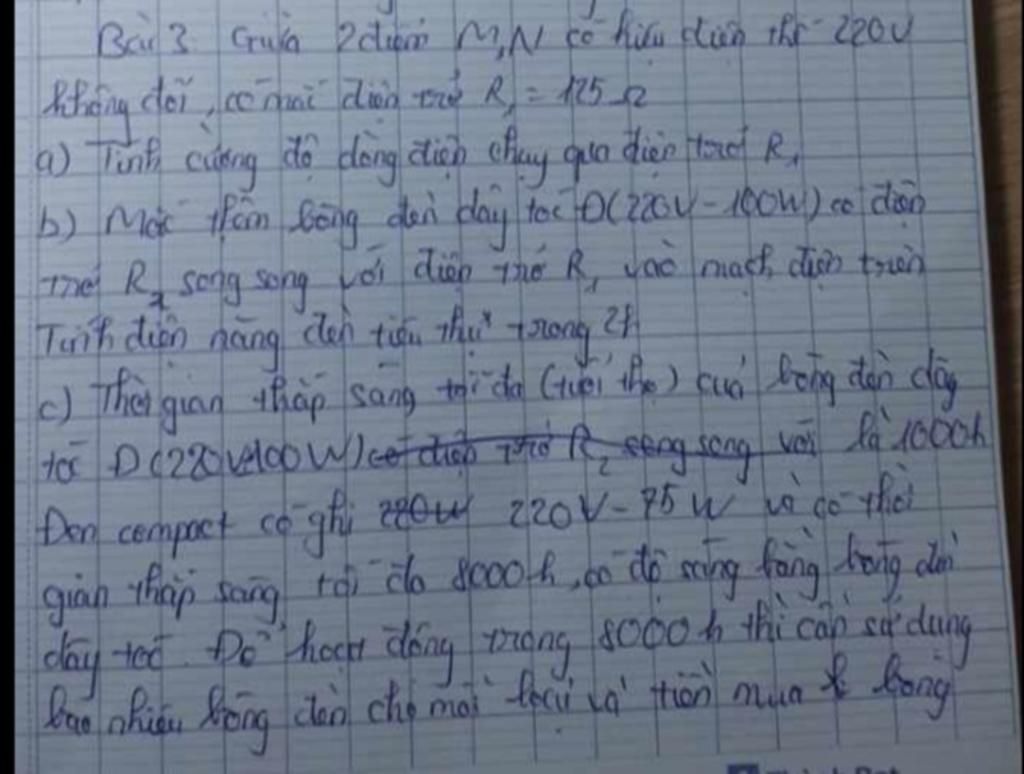 Bài 3 Giữa 2 điểm M, N có hiệu điện thế 220V
không đổi, có mắc điện trở R₁ = 125Ω
a) Tính cường độ dòng điện chạy qua điện trở R₁
b) Mắc thêm bóng đèn dây tóc Đ(220V - 100W) có điện
trở R₂ song song với điện trở R₁ vào mạch điện trên
Tính điện năng đèn tiêu thụ trong 2h
c) Thời gian thắp sáng tối đa (tuổi thọ) của bóng đèn dây
tóc Đ(220V-100W) có điện trở R₂ song song với là 1000h
Đèn compact có ghi 220W 220V - 75W và có thời
gian thắp sáng tối đa 8000h, có độ sáng bằng bóng đèn
dây tóc. Để hoạt động trong 8000h thì cần sử dụng
bao nhiêu bóng đèn cho mỗi loại và tiền mua bóng